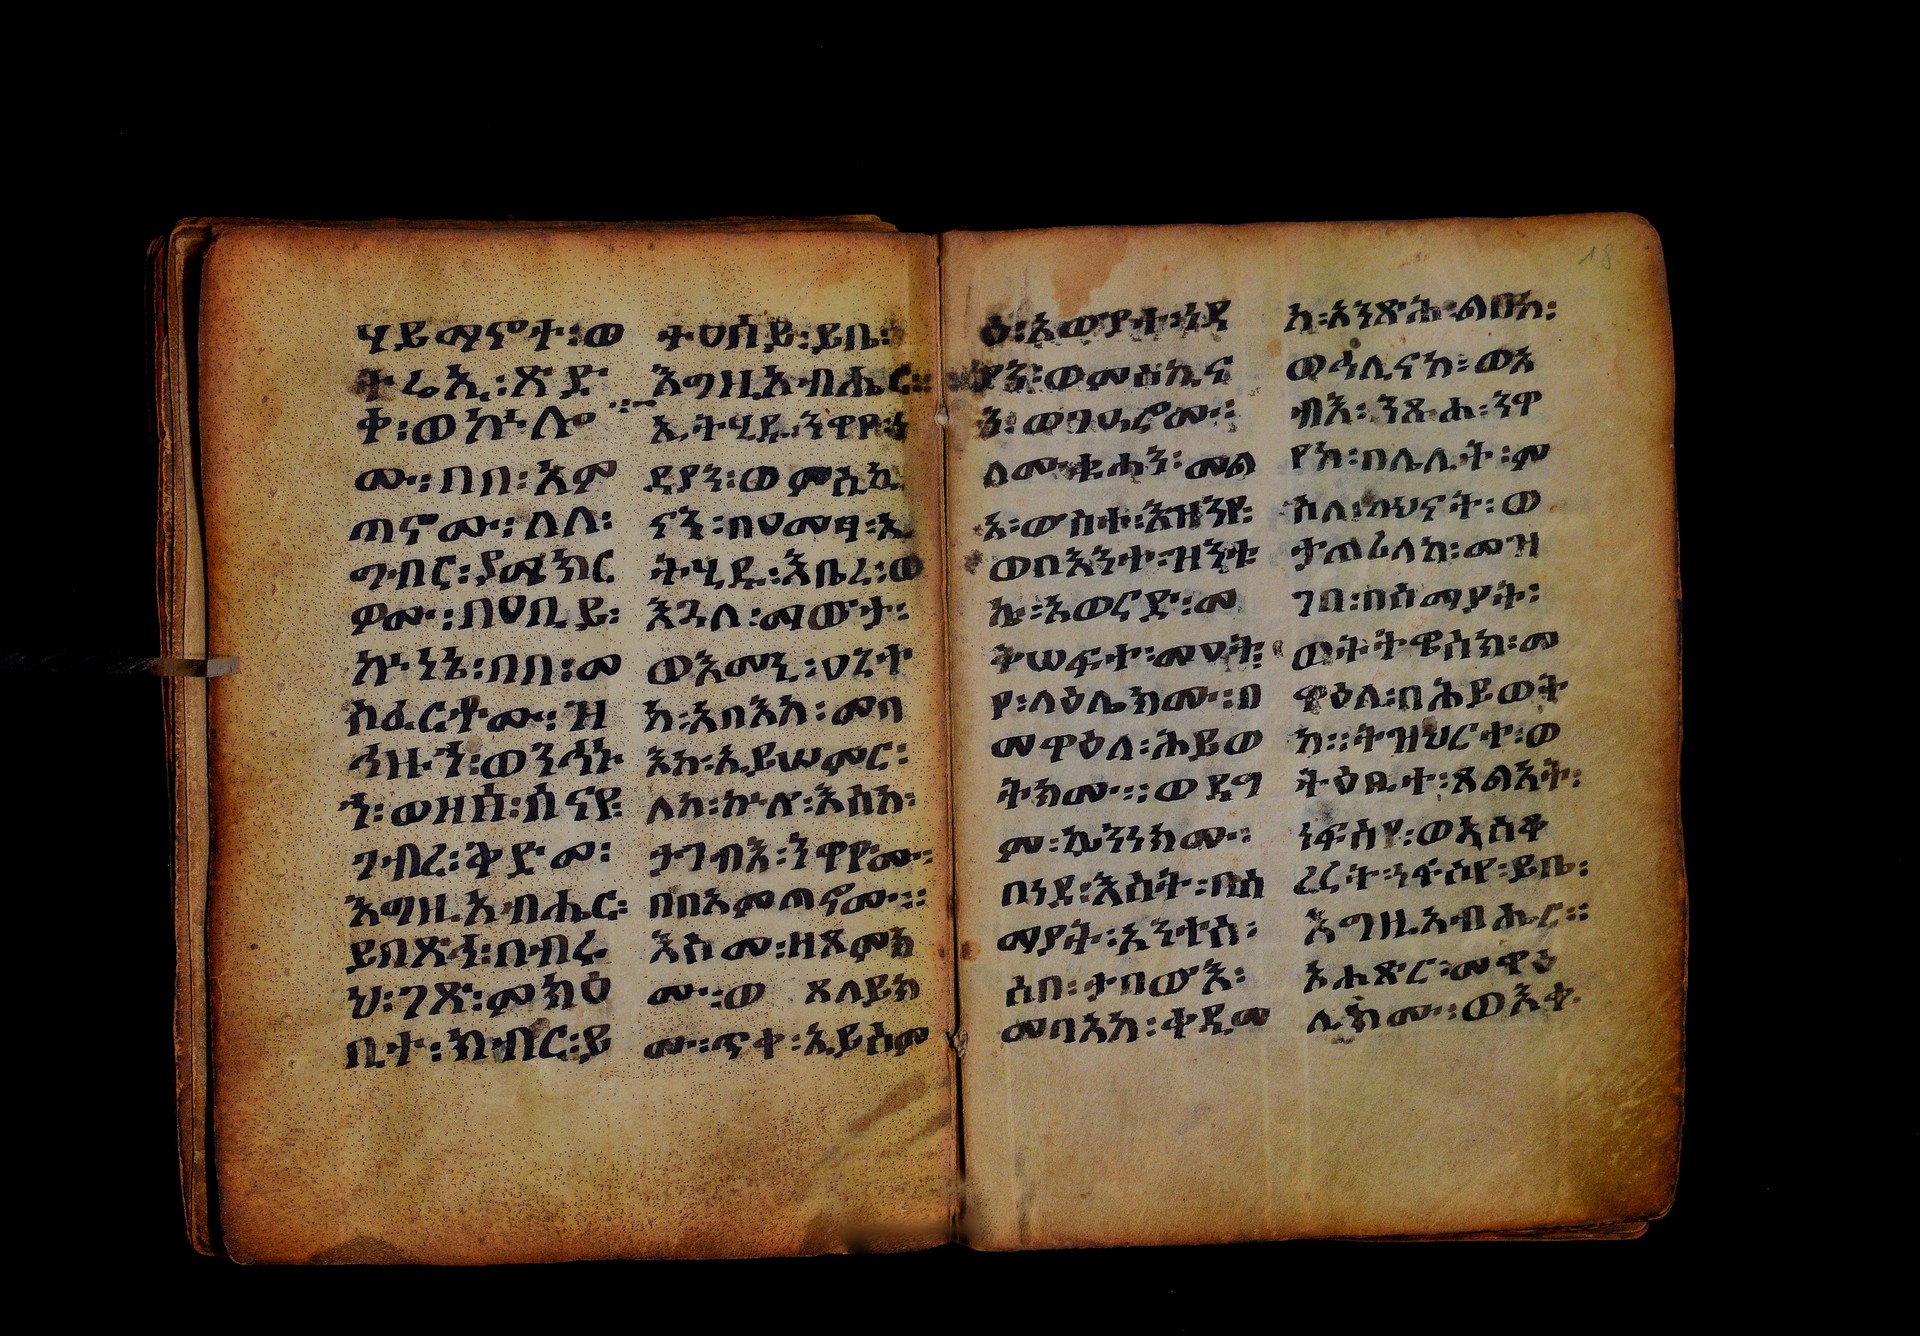 ሃይማኖት፡ወ
ትሬኢ፡ጽድ
ቀ፡ወኵሎ
ሙ፡በበ፡አም
ጣኖሙ፡ለለ፡
ግብር፡ያሜክር
ዎሙ፡በዐቢይ፡
ኵነኔ፡በበ፡መ
ስፈርቶሙ፡ዝ
ኅዙን፡ወንኅኑ
ን፡ወዘሰ፡ሰናየ፡
ገብረ፡ቅድመ፡
እግዚአብሔር፡
ይበጽሕ፡በብሩ
ህ፡ገጽ፡ምክዕ
ቢተ፡ክብር፡ይ
ተዐሰይ፡ይቤ፡
እግዚአብሔር።
ኢትሂዱ፡ንዋየ፡ነ
ዳያን፡ወምስኪ
ናን፡በዐመፃ፡ኢ
ትሂዱ፡እቤረ፡ወ
እጓለ፡ማውታ፡
ወእመኒ፡ሀኒተ
ከ፡አበእከ፡መባ
እከ፡ኢይሠምር፡
ለከ፡ኵሎ፡እስከ፡
ታገብእ፡ንዋዮሙ፡
በበአምጣኖሙ።
እስመ፡ዘጸምክ
ሙ፡ወ ጸለይክ
ሙ፡ጥቀ፡ኢይሰም
ዕ፡እውያተ፡ነዳ
ያን፡ወመስኪና
ን፡ወግሁሮሙ፡
ለሙቁሐን፡መል
አ፡ውስተ፡እዝንየ፡
ወበእንተ፡ዝንቱ
ኬ፡አወርድ፡መ
ቅሠፍተ፡መዐት፡
የ፡ላዕሌክሙ፡በ
መዋዕለ፡ሕይወ
ትክሙ፡፡ወደግ
መ፡ኬንነክሙ፡
በነደ፡እሳት፡በሰ
ማያት፡አንተሰ፡
ሰበ፡ታበውእ፡
መባአከ፡ቀዲመ
ከ፡አንጽሕ፡ልበከ፡
ወኅሊናከ፡ወአ
ብእ፡ንጹሐ፡ንዋ
የከ፡በሌሊት፡ም
ስለ፡ካህናት፡ወ
ታጠሪ፡ለከ፡መዝ
ገበ፡በሰማያት፡
ወትትዌሰክ፡መ
ዋዕለ፡በሕይወት
ከ፡፡ትዝህርተ፡ወ
ትዕቢተ፡ጸልአት፡
ነፍስየ፡ወአስቆ
ረረት፡ነፍስየ፡ይቤ፡
እግዚአብሔር።
አሐጽር፡መዋዕ
ሊክሙ፡ወእቀ